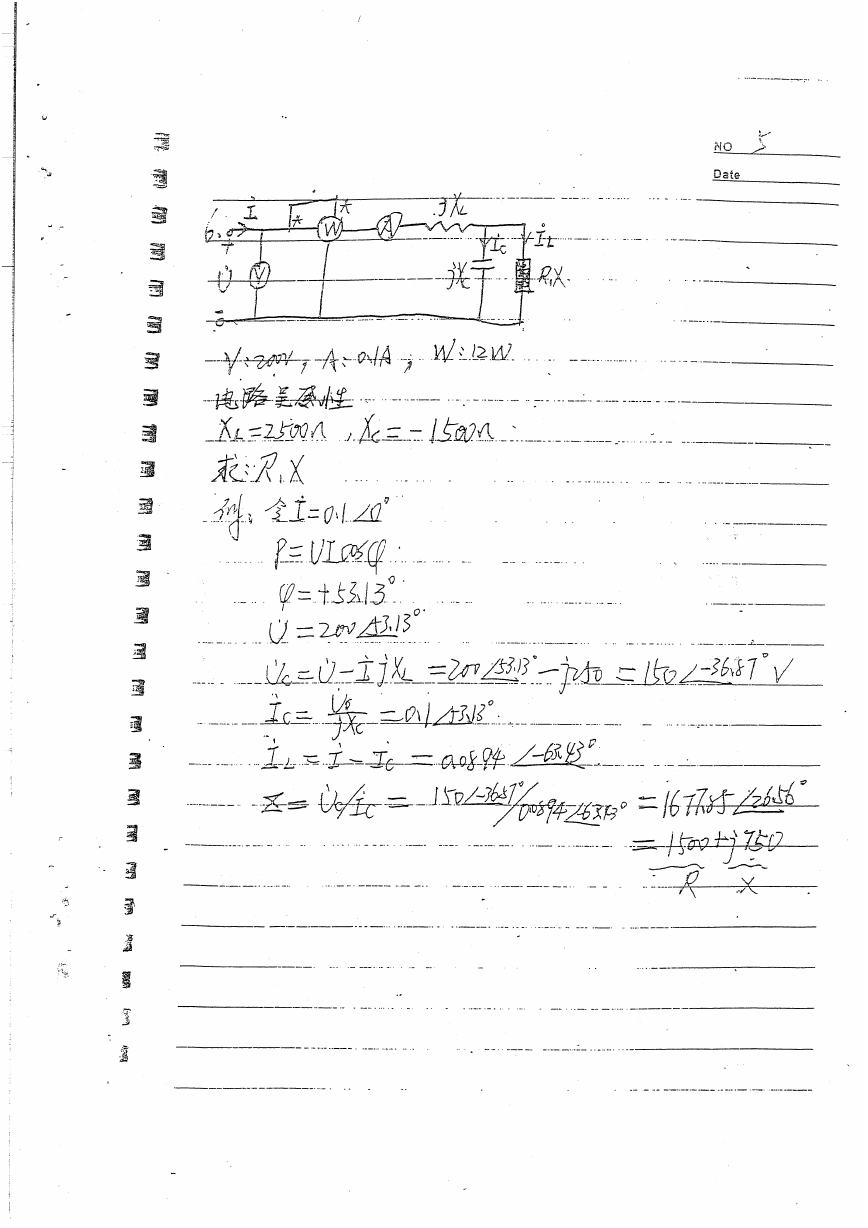 NO 5
Date
6.
İ * * jXL
W A
İc İL
+
U̇ V jXc R,X
-
V:200V, A:0.1A, W:12W
电路呈感性
XL=2500Ω, Xc=-1500Ω
求:R,X
令İ=0.1∠0°
P=UIcosφ
φ=+53.13°
U̇=200∠53.13°
U̇c=U̇-İjXL=200∠53.13°-j250=150∠-36.87°V
İc=U̇c/jXc=0.1∠53.13°
İL=İ-İc=0.0894∠-63.43°
Z=U̇c/İc=150∠-36.87°/0.0894∠-63.43°=1677.85∠26.56°
=1500+j750
R X